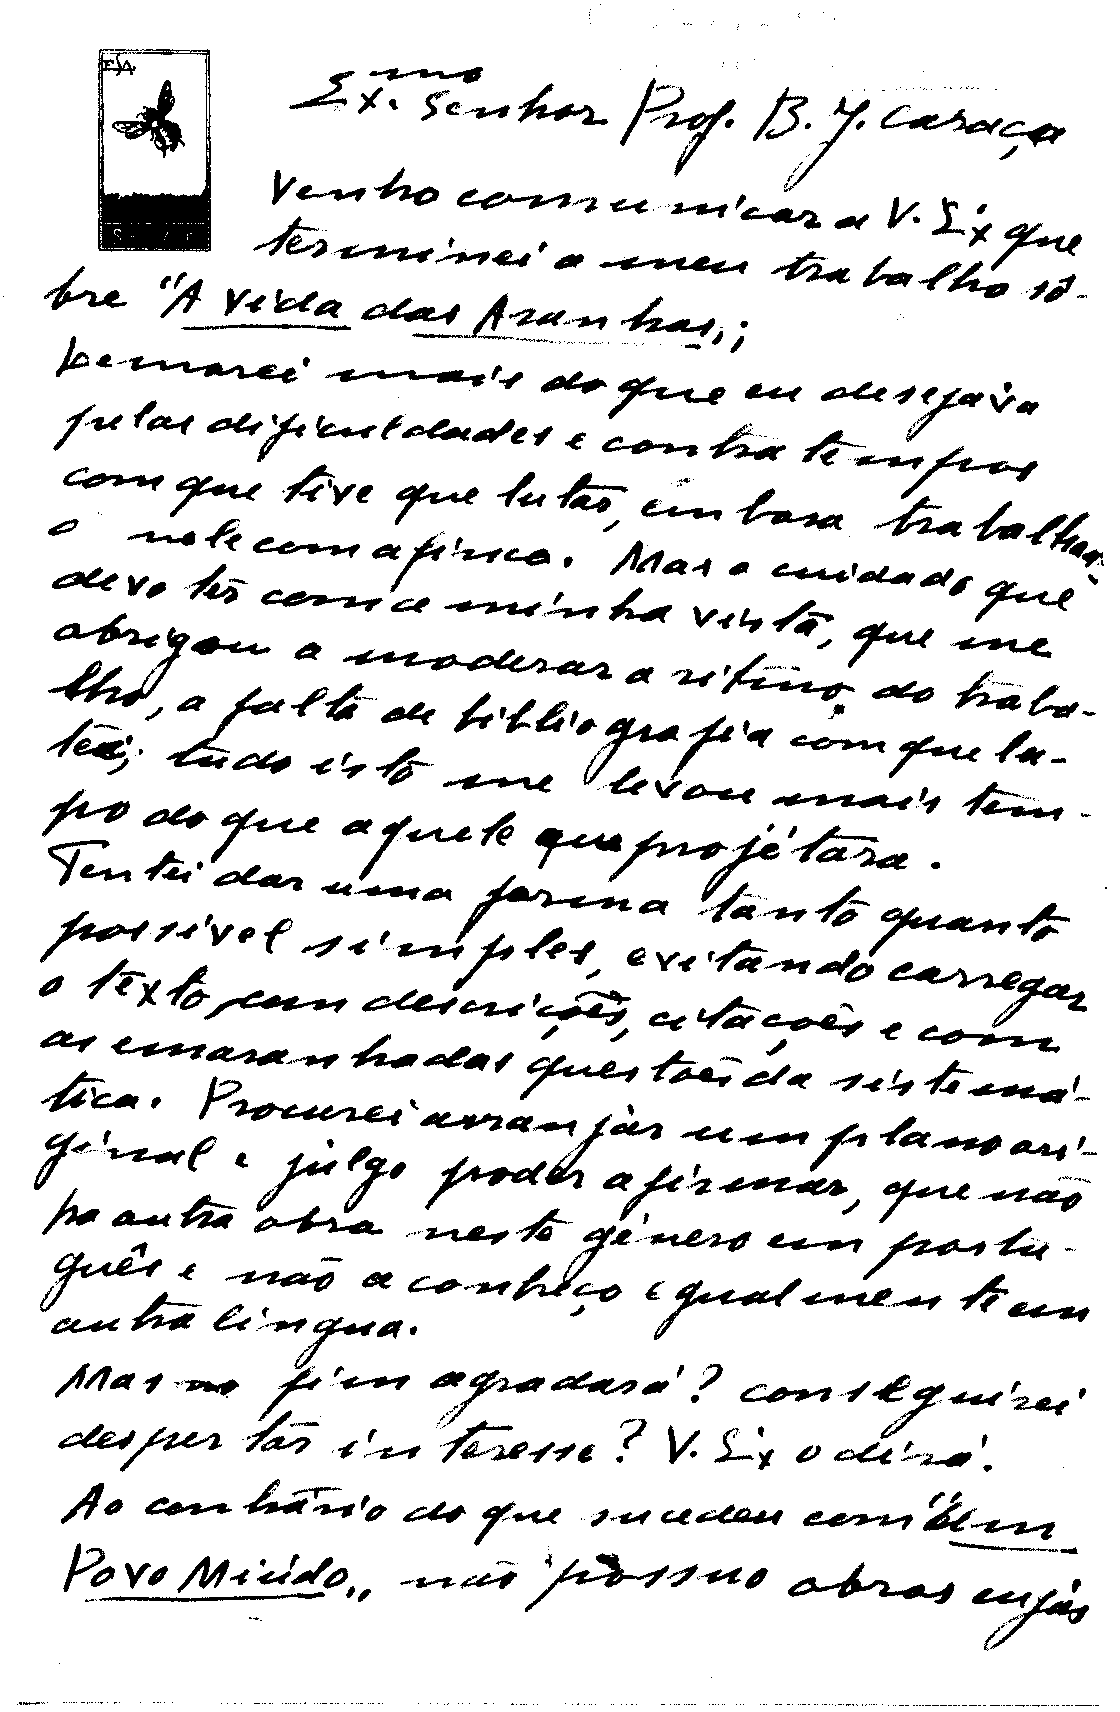 Ex.mo Senhor Prof. B. J. Caraça
Venho comunicar a V. Ex que
terminei o meu trabalho sô-
bre "A vida das Aranhas";
Demorei mais do que eu desejava
pelas dificuldades e contratempos
com que tive que lutar, embora trabalhan-
o nele com afinco. Mas o cuidado que
devo ter com a minha vista, que me
obrigou a moderar o ritmo do traba-
lho, a falta de bibliografia com que lu-
tei; tudo isto me levou mais tem-
po do que aquele que projétara.
Tentei dar uma forma tanto quanto
possível simples, evitando carregar
o texto com descrições, citações e com
as emaranhadas questões da sistemá-
tica. Procurei arranjar um plano ori-
ginal e julgo poder afirmar, que não
ha outra obra neste género em portu-
guês e não a conheço igualmente em
outra lingua.
Mas no fim agradará? conseguirei
despertar interesse? V. Ex o dirá.
Ao contrário do que sucedeu com "Um
Povo Miúdo", não possuo obras cujas